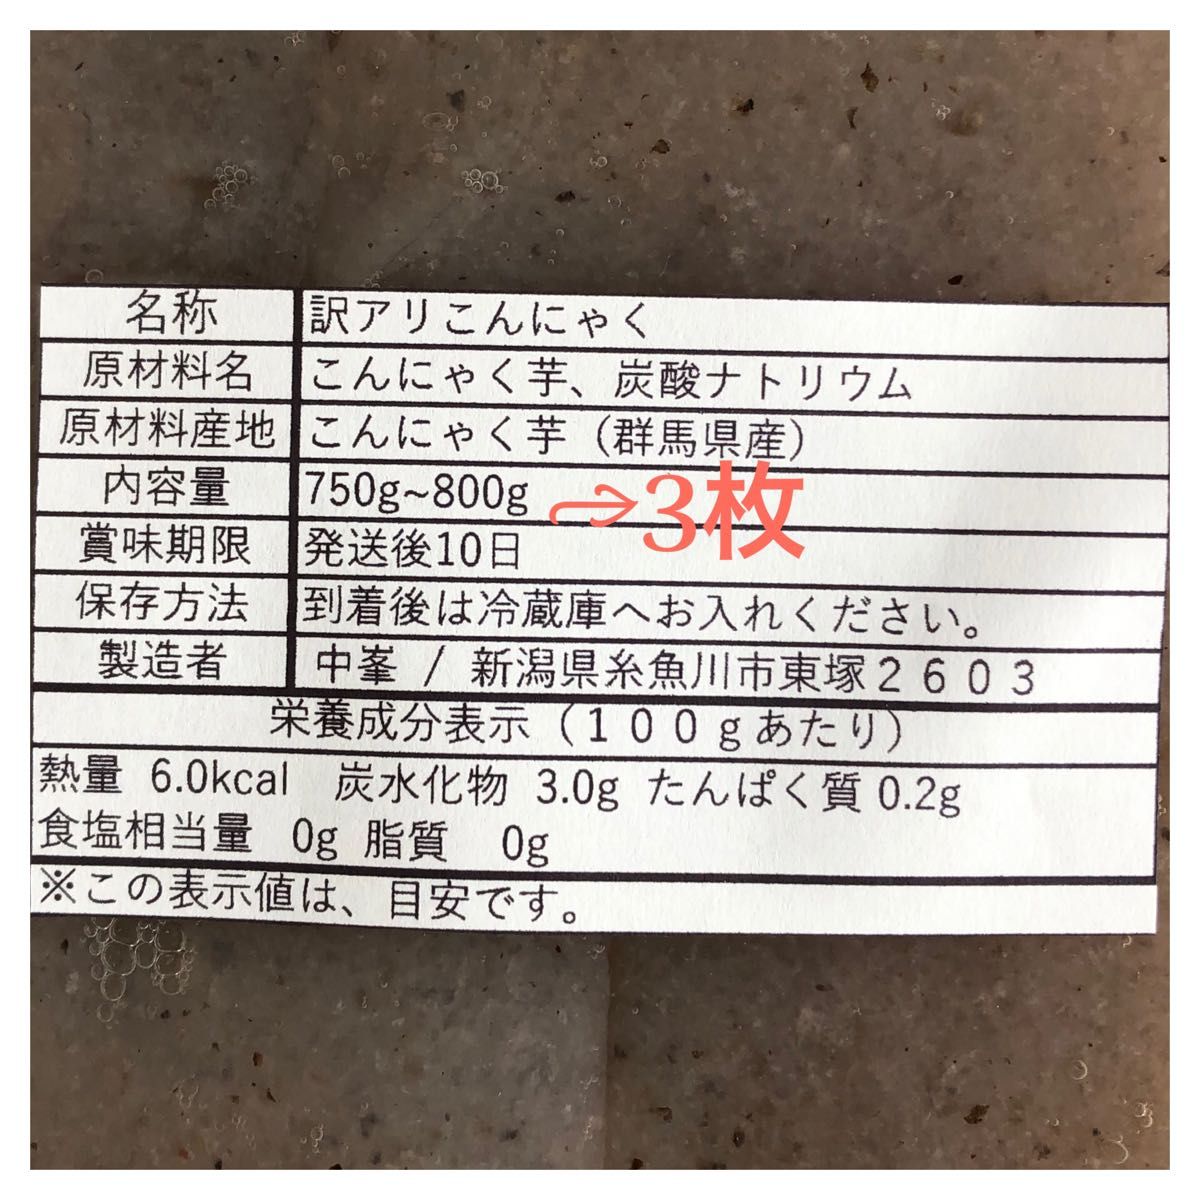 名称 訳アリこんにゃく
原材料名 こんにゃく芋、炭酸ナトリウム
原材料産地 こんにゃく芋（群馬県産）
内容量 750g~800g →3枚
賞味期限 発送後10日
保存方法 到着後は冷蔵庫へお入れください。
製造者 中峯 / 新潟県糸魚川市東塚２６０３
栄養成分表示（１００ｇあたり）
熱量 6.0kcal 炭水化物 3.0g たんぱく質 0.2g
食塩相当量 0g 脂質 0g
※この表示値は、目安です。